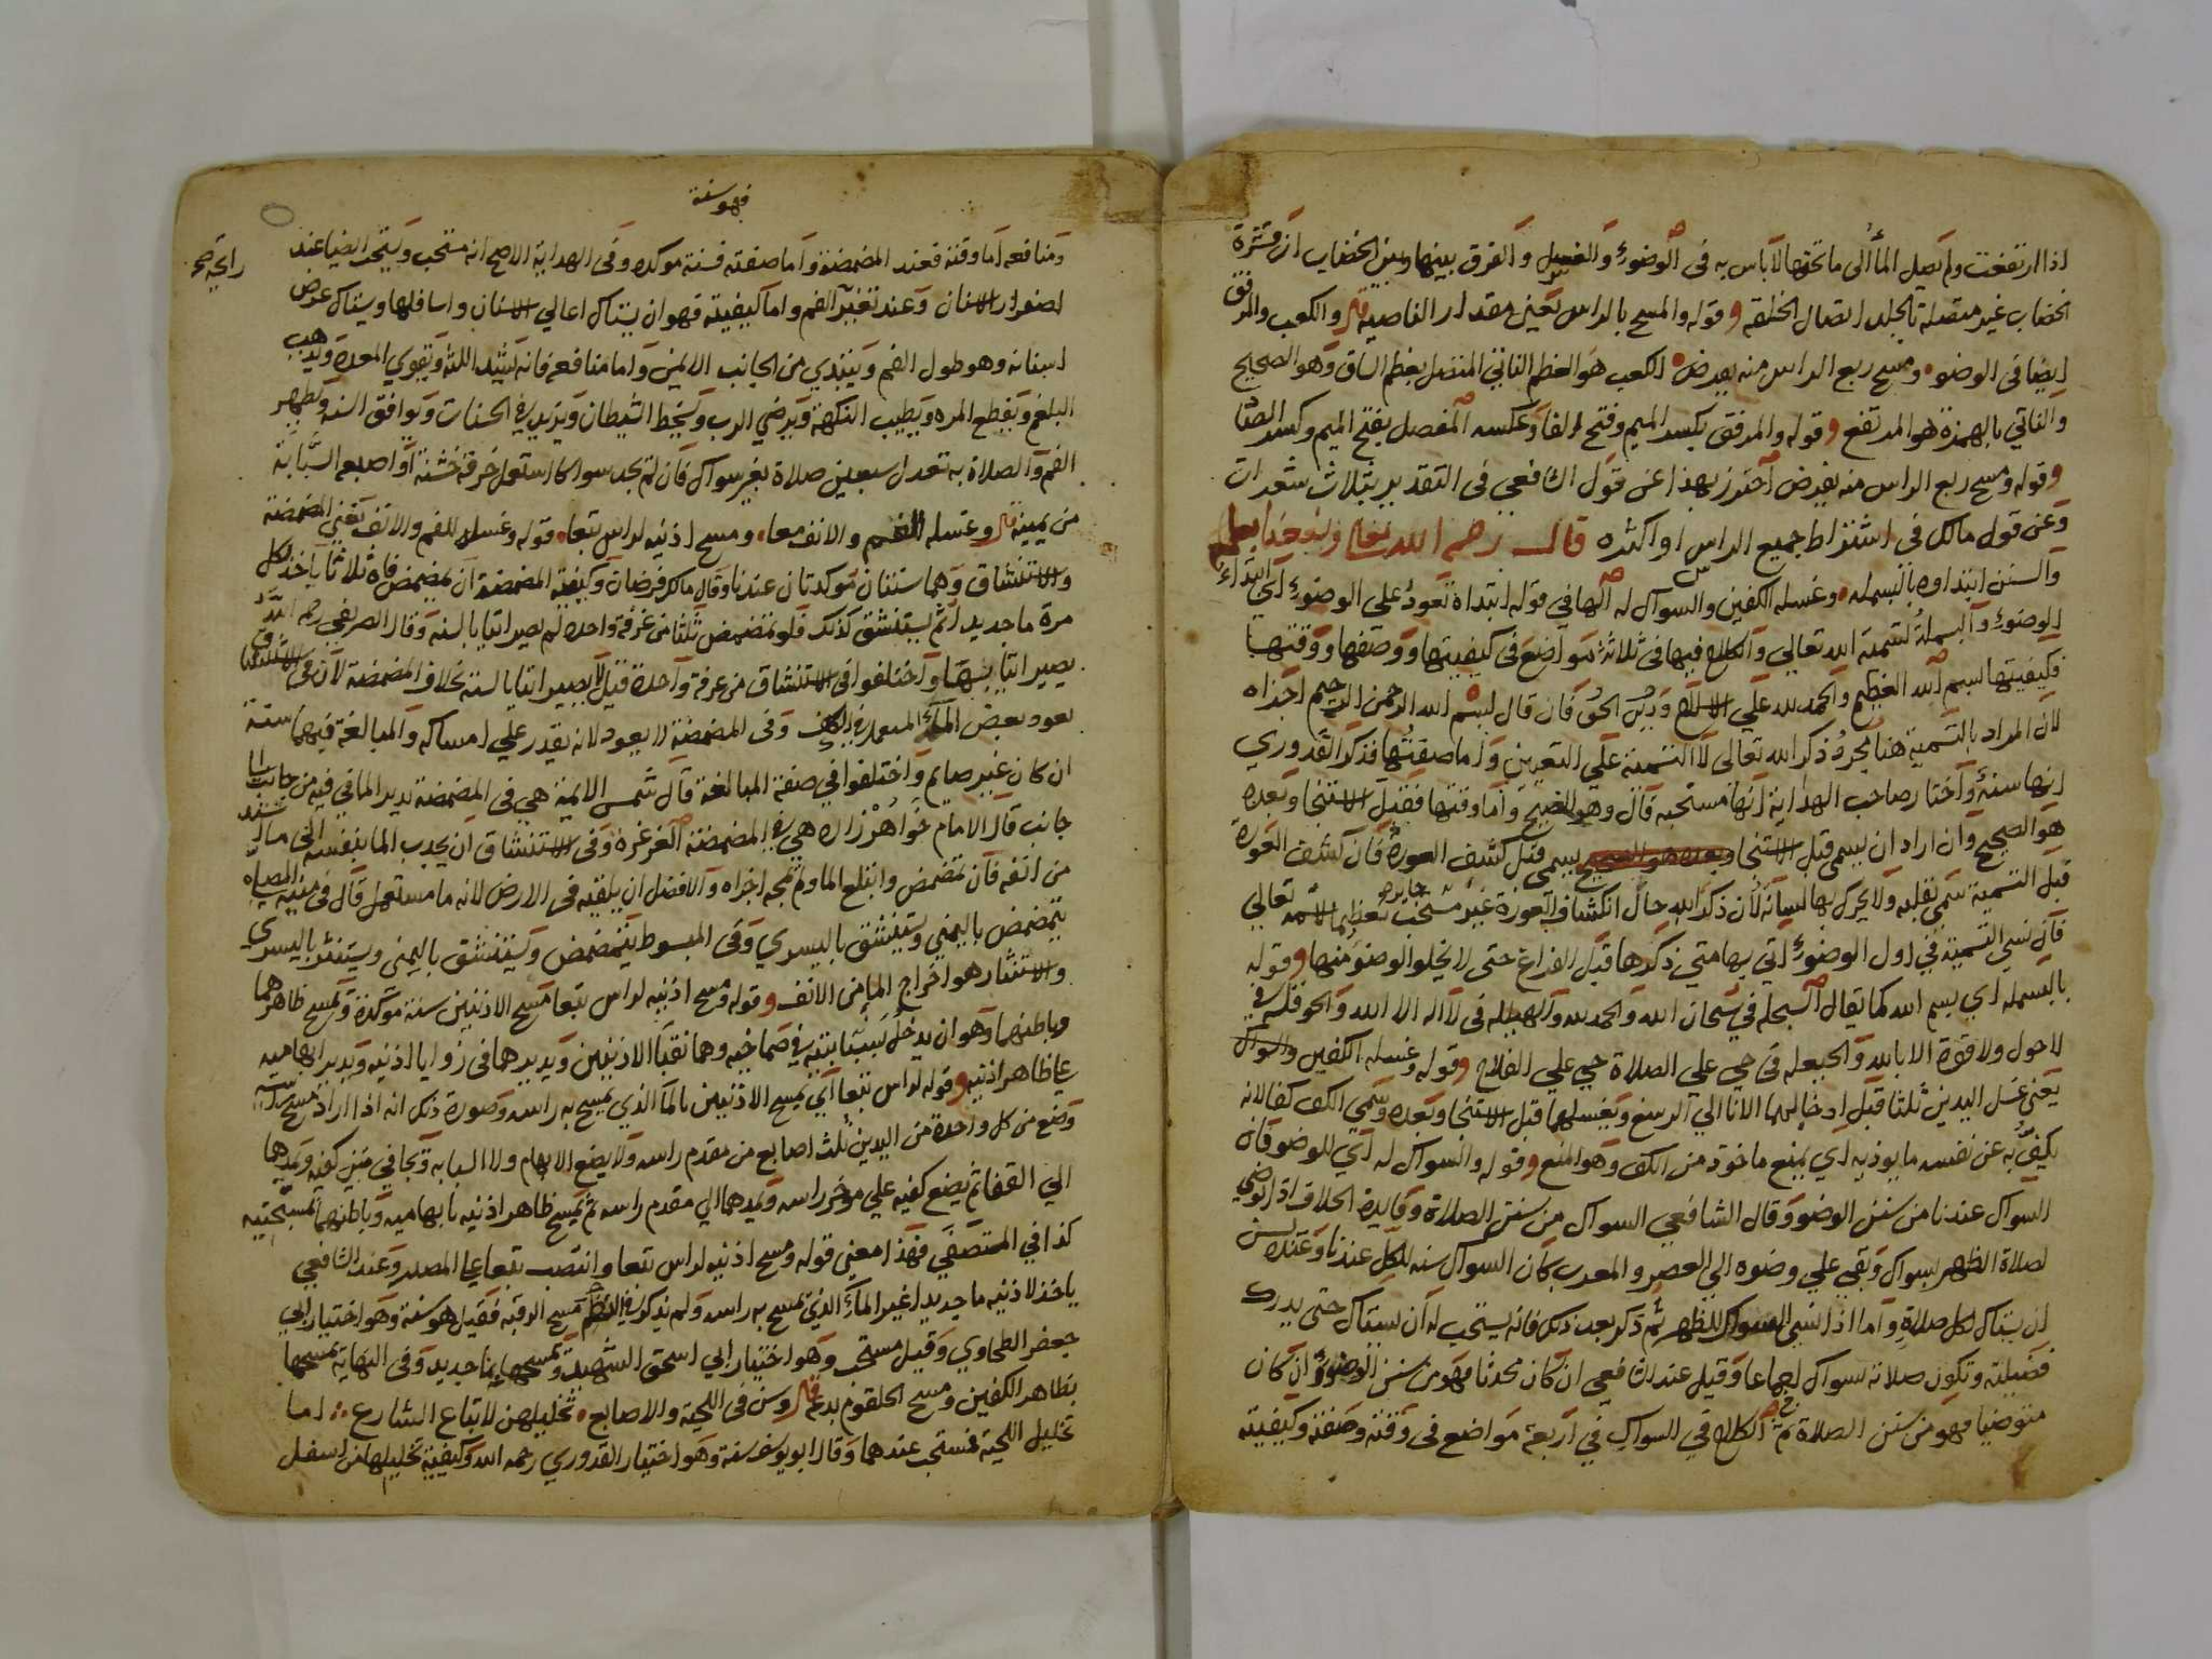 اذا ارتفعت ولم يصل الماء الى ما تحتها لا باس به فى الوضوء والغسل والفرق بينها وبين الخضاب ان قشرة
الخضاب غير متصلة بالجلد اتصال الخلقه وقوله والمسح بالراس تعين مقدار الناصيه قال والكعب والمرفق
ايضا فى الوضو ومسح ربع الراس منه يفرض الكعب هو العظم الناتئ المتصل بعظم الساق وهو الصحيح
والناتي بالهمزة هو المرتفع وقوله والمرفق بكسر الميم وفتح الفا وعكسه المفصل بفتح الميم وكسر الصاد
وقوله ومسح ربع الراس منه يفرض احترز بهذا عن قول الشافعي فى التقدير بثلاث شعرات
وعن قول مالك فى اشتراط جميع الراس او اكثره قال رحمه الله تعالى ونفعنا بعلمه
والسنن ابتداوه بالبسمله وغسله الكفين والسواك له الها في قوله ابتداه تعود على الوضوء اي ابتداء
الوضوء والبسملة لتسمية الله تعالي والكلام فيها فى ثلاثة مواضع فى كيفيتها ووصفها ووقتها
فكيفيتها بسم الله العظيم والحمد لله علي الاسلام ودين الحق فان قال بسم الله الرحمن الرحيم اجزاه
لان المراد بالتسمية هنا مجرد ذكر الله تعالى لا التسمية على التعيين واما صفتها فذكر القدوري
انها سنة واختار صاحب الهداية انها مستحبه قال وهو الصحيح واما وقتها فقيل قبل الاستنجا وبعده
هو الصحيح وان اراد ان يسمي قبل الاستنجا وبعده هو الصحيح يسمى قبل كشف العورة فان كشف العورة
قبل التسمية سمى بقلبه ولا يحرك بها لسانه لان ذكر الله حال انكشاف العورة غير مستحب جايزه تعظيما لاسمه تعالي
فان نسي التسمية في اول الوضوء اتي بها متي ذكرها قبل الفراغ حتى لا يخلو الوضوء منها وقوله
بالبسمله اي بسم الله كما يقال السبحله في سبحان الله والحمد لله والهيلله فى لا اله الا الله والحوقله في
لا حول ولا قوة الا بالله والحيعله فى حي على الصلاة حي علي الفلاح وقوله وغسله الكفين والسواك
يعنى غسل اليدين ثلثا قبل ادخالهما الانا الي الرسغ ويغسلهما قبل الاستنجا وبعده وسمي الكف كفا لانه
يكف به عن نفسه ما يوذيه اي يمنع ماخوذ من الكف وهو المنع وقوله والسواك له اي للوضو فان
السواك عندنا من سنن الوضو وقال الشافعي السواك من سنن الصلاة وفايدة الخلاف اذا توضي
لصلاة الظهر بسواك وبقي علي وضوه الي العصر والمغرب كان السواك سنه للكل عندنا وعنده يسن
ان يستاك لكل صلاة واما اذا نسي السواك للظهر ثم ذكر بعد ذلك فانه يستحب له ان يستاك حتى يدرك
فضيلته وتكون صلاته بسواك اجماعا وقيل عند الشافعي ان كان محدثا فهو من سنن الوضوء وان كان
متوضيا فهو من سنن الصلاة ثم الكلام في السواك في اربعة مواضع فى وقته وصفته وكيفيته
فهو سنة
ومنافعه اما وقته فعند المضمضة واما صفته فسنة موكده وفى الهداية الاصح انه مستحب ويستحب ايضا عند
رايحة صح
اصفرار الاسنان وعند تغير الفم واما كيفيته فهو ان يستاك اعالي الاسنان واسافلها ويستاك عرض
اسنانه وهو طول الفم ويبتدي من الجانب الايمن واما منافعه فانه يشد اللثه ويقوي المعدة ويذهب
البلغم ويقطع المره ويطيب النكهة ويرضي الرب ويسخط الشيطان ويزيد في الحسنات ويوافق السنه ويطهر
الفم والصلاة به تعدل سبعين صلاة بغير سواك فان لم يجد سواكا استعمل خرقة خشنة او اصبعه السبابة
من يمينه قال وغسله الفم والانف معا ومسح اذنيه لراس تبعا قوله وغسله للفم والانف يعني المضمضة
والاستنشاق وهما سنتان موكدتان عندنا وقال مالك فرضان وكيفية المضمضة ان يمضمض فاه ثلاثا ياخذ لكل
مرة ما جديدا ثم يستنشق كذلك فلو تمضمض ثلثا من غرفة واحده لم يصر اتيا بالسنه وقال الصيرفي رحمه الله
يصير اتيا بها واختلفوا في الاستنشاق من غرفة واحدة قيل لا يصير اتيا بالسنه بخلاف المضمضة لان فى الاستنشاق
يعود بعض الماء المستعمل في الكف وفى المضمضة لا يعود لانه يقدر علي امساكه والمبالغة فيهما سنة
ان كان غير صايم واختلفوا في صفة المبالغة قال شمس الايمة هي في المضمضة يدير الما في فيه من جانب الى
جانب قال الامام خواهر زاده هي في المضمضة الغرغرة وفى الاستنشاق ان يجذب الما بنفسه الى ما اشتد
من انفه فان تمضمض وابتلع الما ولم يمجه اجزاه والافضل ان يلقيه فى الارض لانه ما مستعمل قال في منية المصلي
يتمضمض باليمني ويستنشق باليسري وفى المبسوط يتمضمض ويستنشق باليمنى ويستنثر باليسري
والاستنثار هو اخراج الما من الانف وقوله ومسح اذنيه لراس تبعا مسح الاذنين سنة موكدة ويمسح ظاهرهما
وباطنهما وهو ان يدخل سبابتيه في صماخيه وهما ثقبا الاذنين ويديرهما فى زوايا اذنيه ويدير ابهاميه
على ظاهر اذنيه وقوله لراس تبعا اي يمسح الاذنين بالما الذي يمسح به راسه وصورة ذلك انه اذا اراد مسح راسه
وضع من كل واحدة من اليدين ثلث اصابع من مقدم راسه ولا يضع الابهام ولا السبابه ويجافي بين كفيه ويمدهما
الي القفا ثم يضع كفيه علي موخر راسه ويمدهما الي مقدم راسه ثم يمسح ظاهر اذنيه بابهاميه وباطنهما بمسبحتيه
كذا في المستصفي فهذا معنى قوله ومسح اذنيه لراس تبعا وانتصب تبعا على المصدر وعند الشافعي
ياخذ لاذنيه ما جديدا غير الماء الذي يمسح به راسه ولم يذكر في النظم مسح الرقبه فقيل هو سنة وهو اختيار ابي
جعفر الطحاوي وقيل مستحب وهو اختيار ابي اسحق الشهيد ويمسحها بما جديد وفى النهاية يمسحها
بظاهر الكفين ومسح الحلقوم بدعه قال وسن فى اللحية والاصابع تخليلهن لاتباع الشارع اما
تخليل اللحية فمستحب عندهما وقال ابو يوسف سنة وهو اختيار القدوري رحمه الله وكيفية تخليلها من اسفل